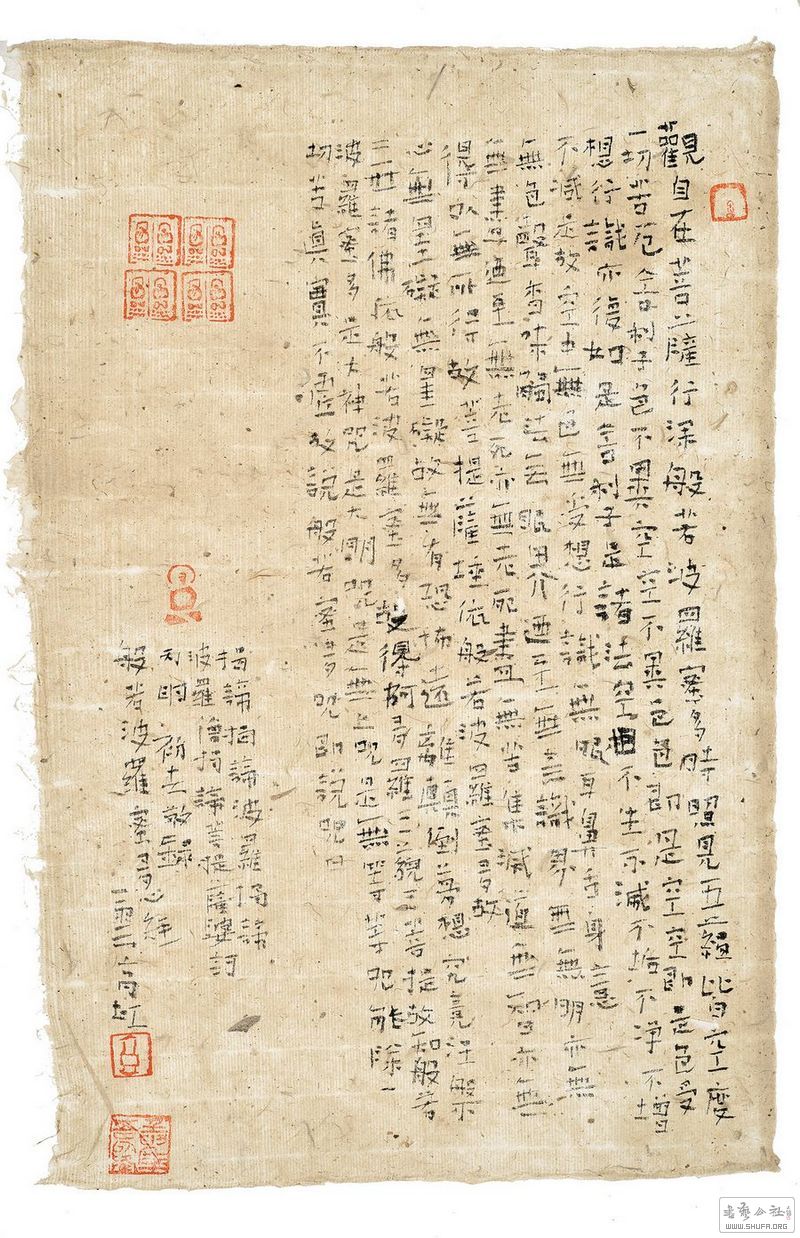 觀自在菩薩行深般若波羅蜜多時照見五蘊皆空度
一切苦厄舍利子色不異空空不異色色即是空空即是色受
想行識亦復如是舍利子是諸法空相不生不滅不垢不淨不增
不減是故空中無色無受想行識無眼耳鼻舌身意
無色聲香味觸法無眼界乃至無意識界無無明亦無
無明盡乃至無老死亦無老死盡無苦集滅道無智亦無
得以無所得故菩提薩埵依般若波羅蜜多故
心無罣礙無罣礙故無有恐怖遠離顛倒夢想究竟涅槃
三世諸佛依般若波羅蜜多故得阿耨多羅三藐三菩提故知般若
波羅蜜多是大神咒是大明咒是無上咒是無等等咒能除一
切苦真實不虛故說般若蜜多咒即說咒曰
揭諦揭諦波羅揭諦
波羅僧揭諦菩提薩婆訶
般若波羅蜜多心經
書藝公社
WWW.SHUFA.ORG